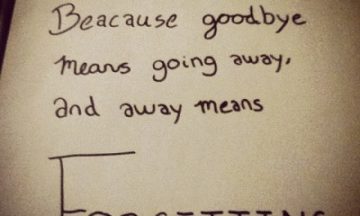 Beacause goodbye
means going away,
and away means